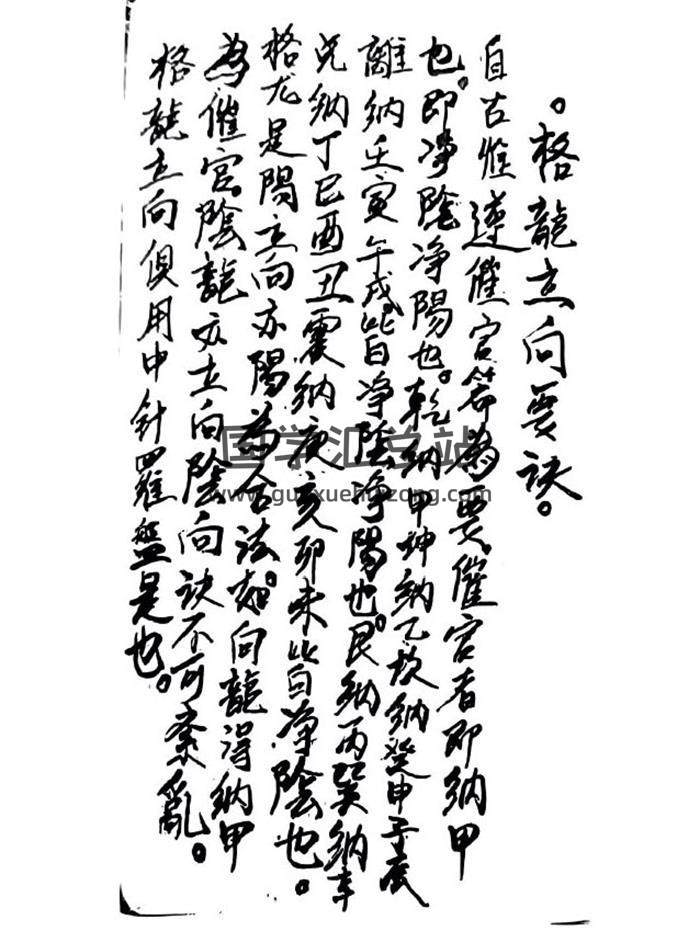 。格龍立向要訣。
自古惟遵催官等為要。催官者即納甲
也。即净陰净陽也。乾納甲坤納乙坎納癸申子辰
離納壬寅午戌此皆净陽也。艮納丙巽納辛
兌納丁巳酉丑震納庚亥卯未此皆净陰也。
格龙是陽立向亦陽為合法。如向龍得納甲
為催官。陰龍亦立向陰向訣不可紊亂。
格龍立向俱用中針羅盤是也。
国学汇总站
www.guoxuehuizong.com